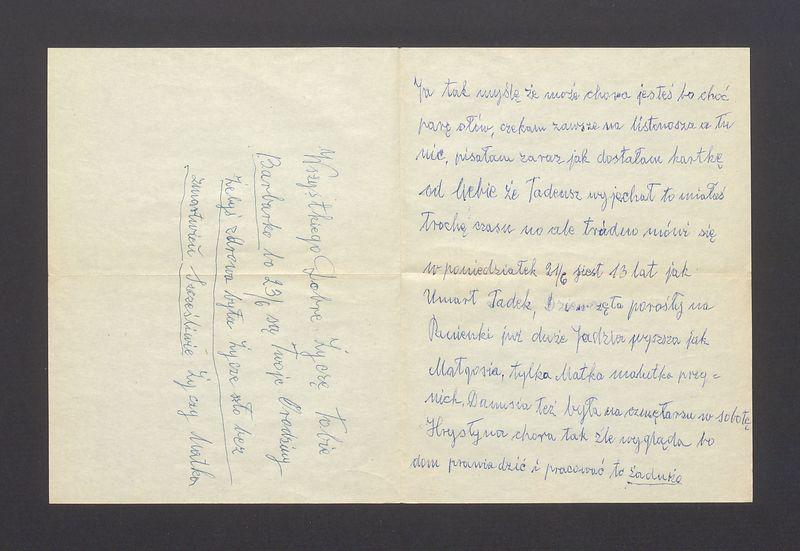 Ja tak myślę że może chora jesteś bo choć
parę słów, czekam zawsze na listonosza a tu
nic, pisałam zaraz jak dostałam kartkę
od Ciebie że Tadeusz wyjechał to miałeś
trochę czasu no ale trudno mówi się
w poniedziałek 21/6 jiest 13 lat jak
Umart Tadek, porosły na
już duże Jadzia wyszsza jak
Małgosia, tylka Matka malutka przy=
nich. Danusia też była na czmętarzu w sobotę
Hrystyna chora tak źle wygląda bo
dom prawiadzić i pracować to zadużo
Wszystkiego Dobre Życzę tobie
Barbarko bo 23/6 są Twoje Urodziny
Żebyś zdrowa była Życzę Ci bez
zmartwień Szczęśliwie Życzy Matka